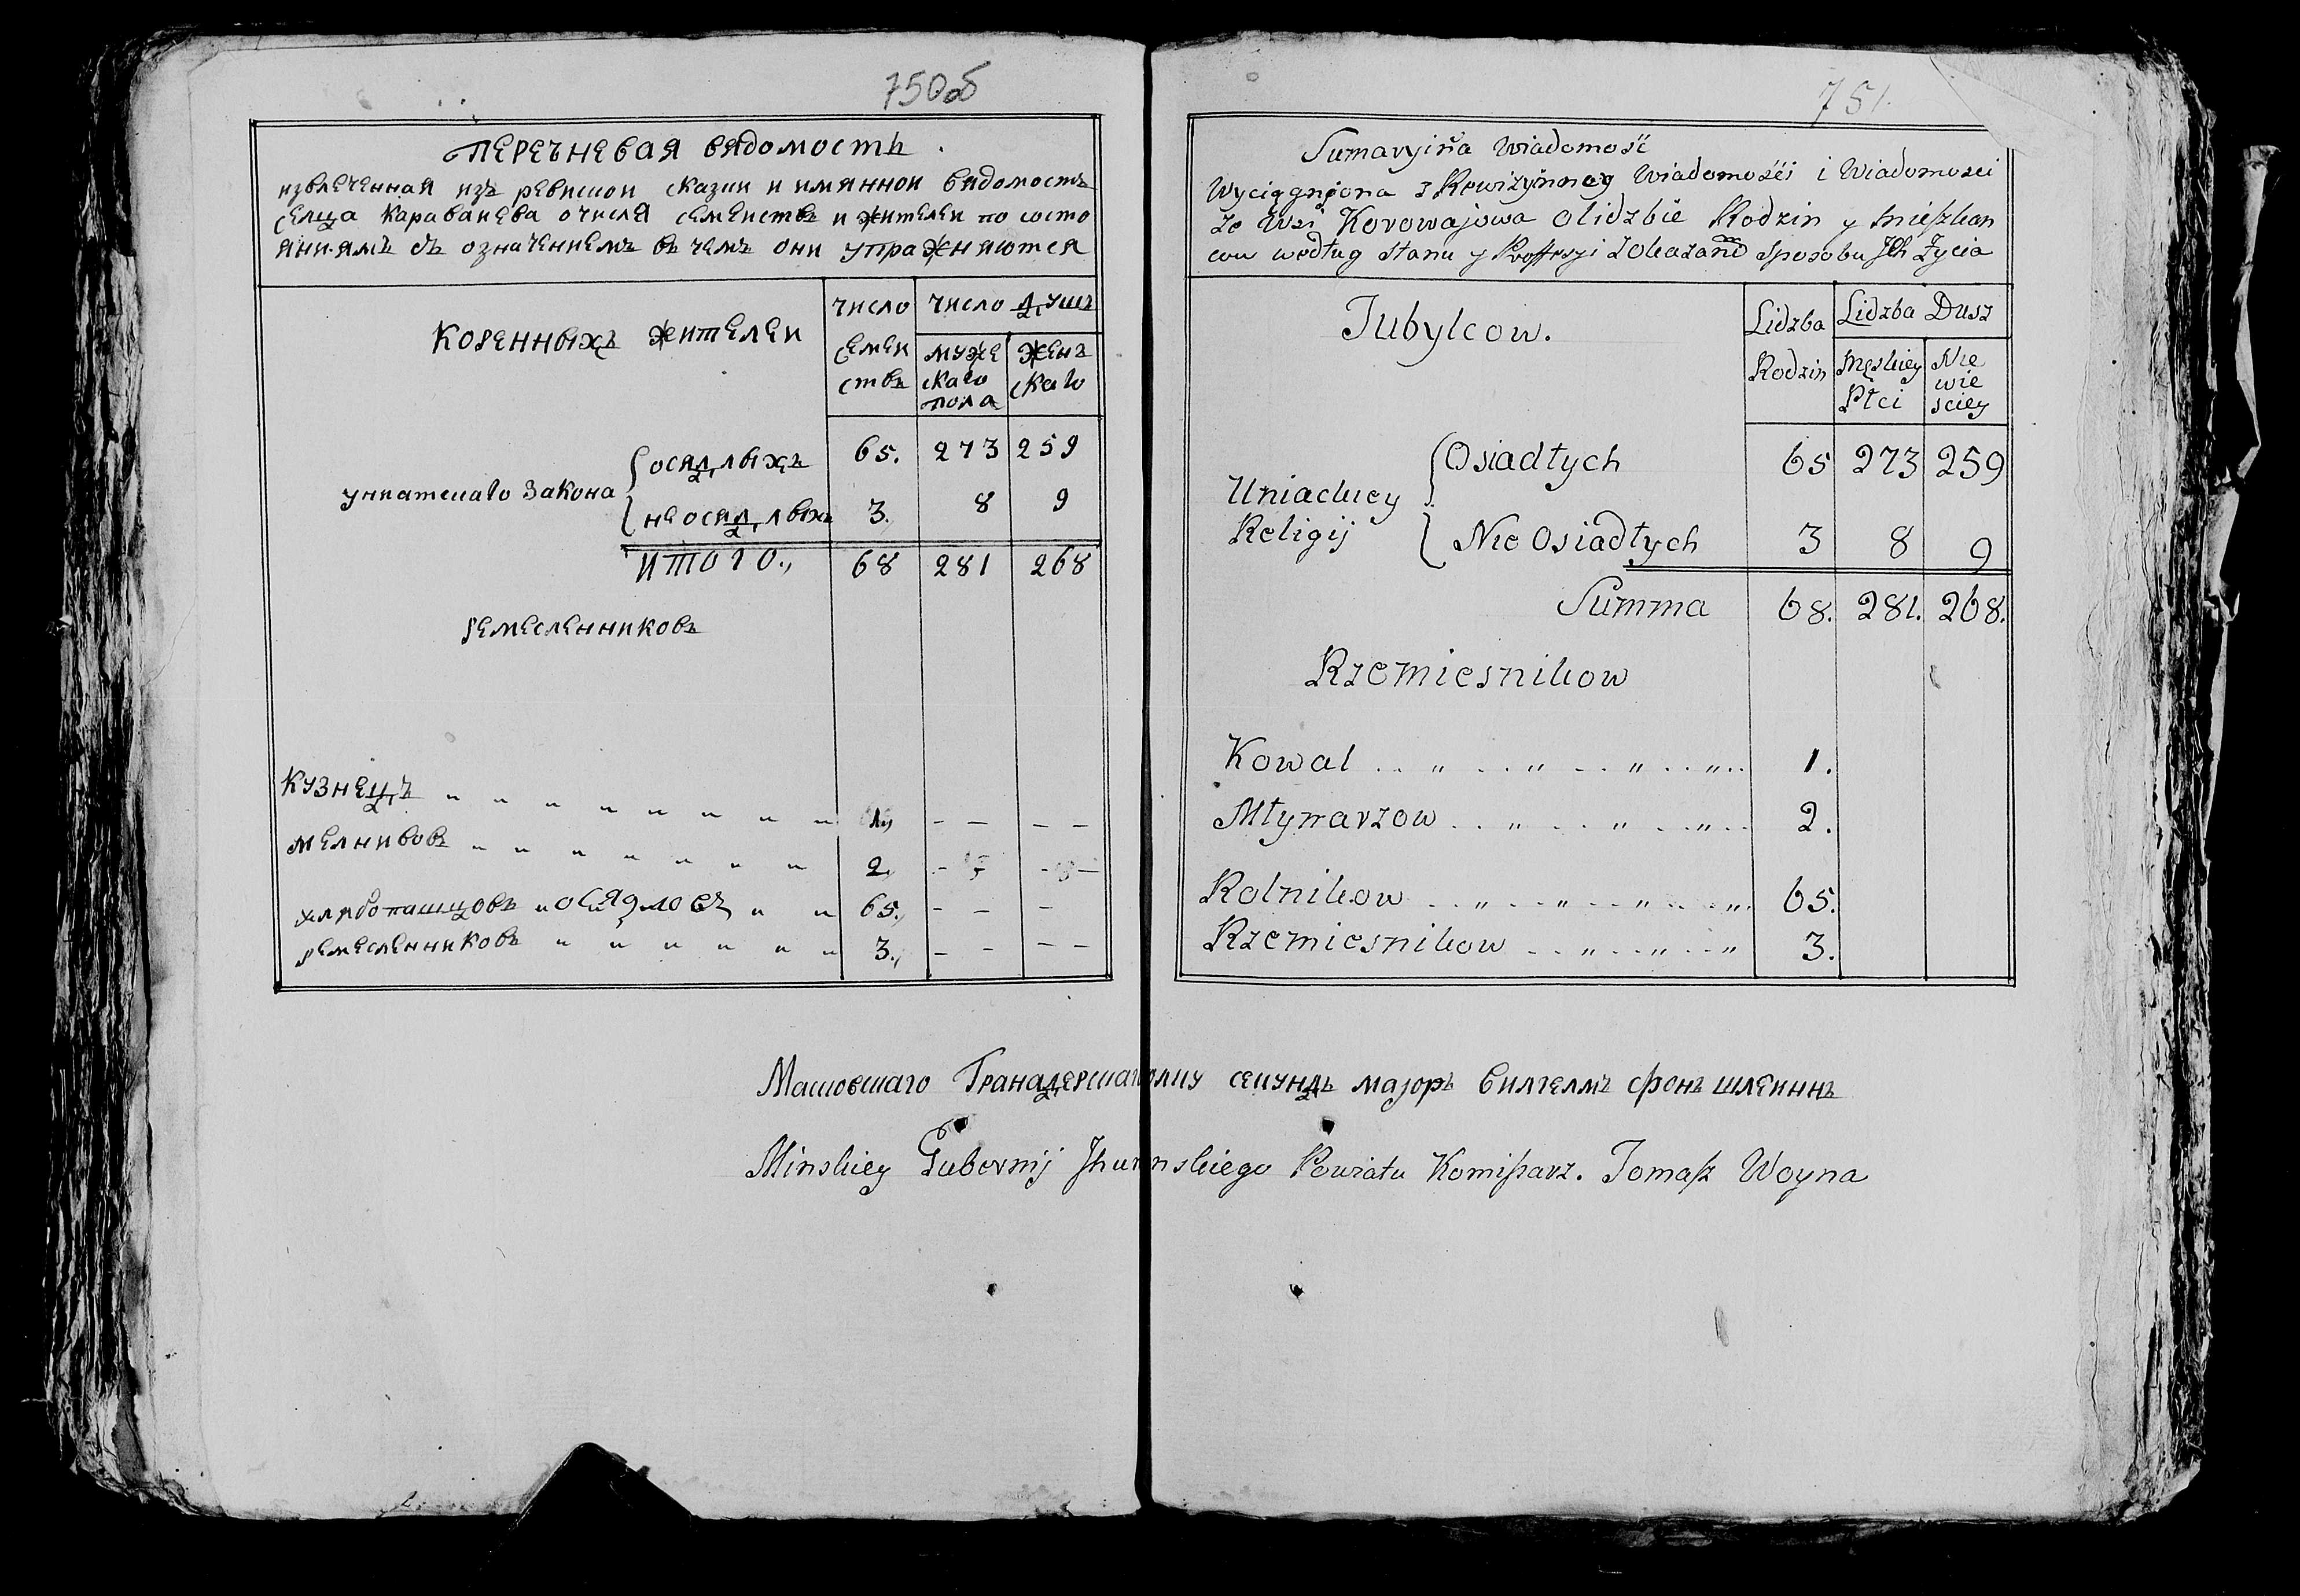 750об
ПЕРЕЧНЕВАЯ ВѢДОМОСТЬ.
извлеченная изъ ревизкои сказки и имяннои вѣдомости
селца Караваиева о числѣ семеиствъ и жителеи по состо
янiямъ съ означениемъ въ чемъ они упражняются
коренныхъ жителеи
число
семеи
ствъ
число душъ
муже
скаго
пола
женъ
скаго
униатскаго закона
осядлыхъ 65. 273 259
неосядлыхъ 3. 8 9
ИТОГО., 68 281 268
ремесленниковъ
кузнецъ 1,, – – – –
мелниковъ 2, – –
хлябопашцовъ 65., – – –
ремесленниковъ 3., – – – –
751.
Sumaryina Wiadomość
Wyciągniona z Rewizyinney Wiadomości i Wiadomosci
ze Wsi Korowajowa o lidzbie Rodzin y mieszkan
cow według stanu y Proffesyi z Okazanie sposobu Ich Zycia
Tubylcow.
Lidzba
Rodzin
Lidzba Dusz
Męskiey
Płci
Nie
wie
sciey
Uniackiey
Religij
Osiadłych 65 273 259
Nie Osiadłych 3 8 9
Summa 68. 281. 268.
Rzemiesnikow
Kowal 1.
Młynarzow 2.
Rolnikow 65.
Rzemiesnikow 3.
Масковскаго Гранадерскаго полку секундъ маjоръ вилгелмъ фонъ шлеиинъ
Minskiey Gubernij Ihumnskiego Powiatu Komissarz. Tomasz Woyna